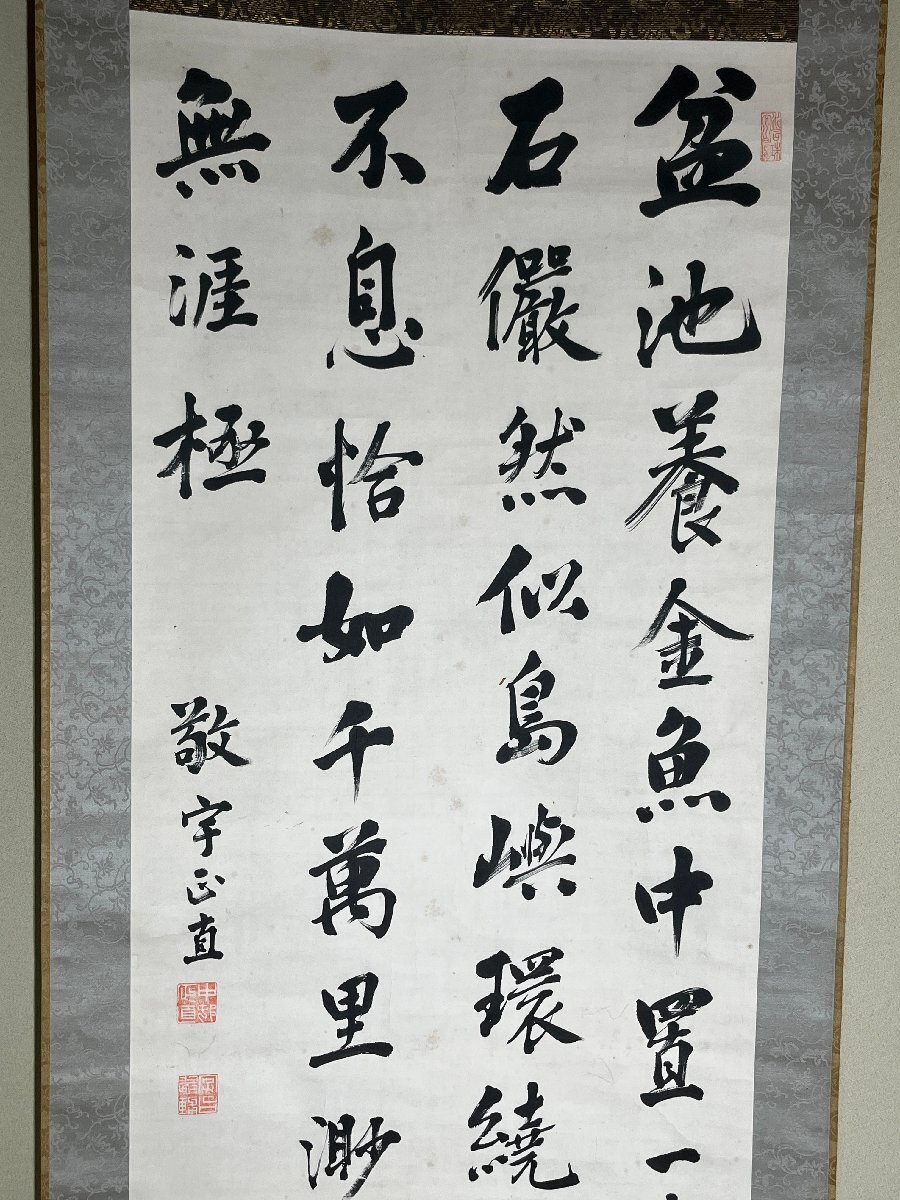 盆池養金魚中置一
石儼然似島嶼環繞
不息恰如千萬里渺
無涯極
敬宇正直